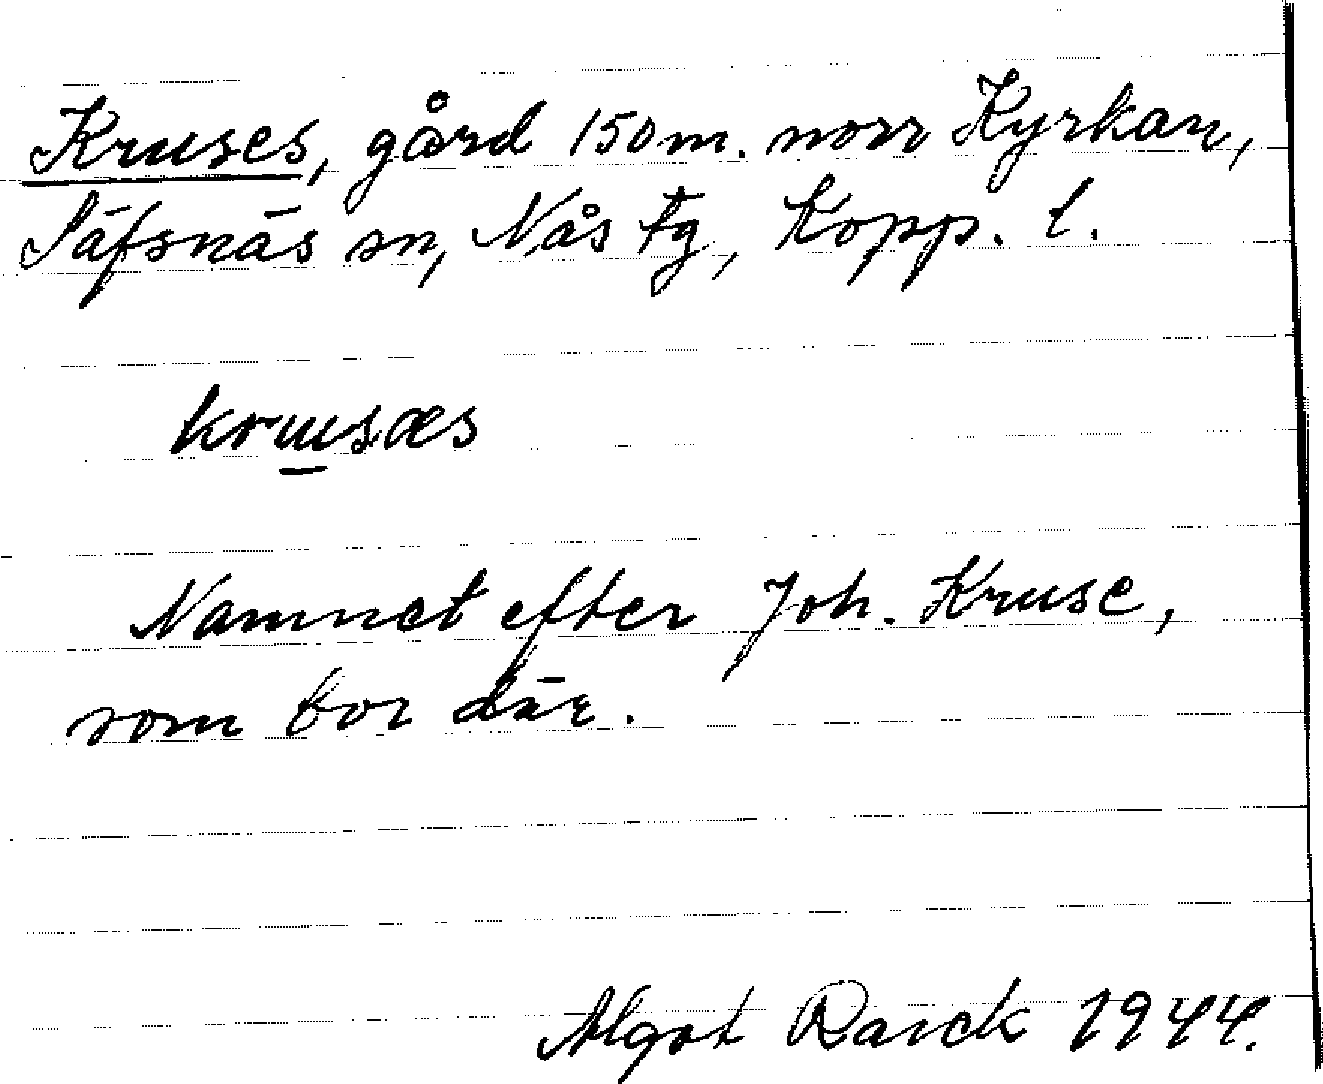 Kruses, gård 150 m. norr Kyrkan,
Säfsnäs sn, Nås tg, Kopp. l.
krɯsæs
Namnet efter Joh. Kruse,
som bor där.
Algot Rarck 1944.